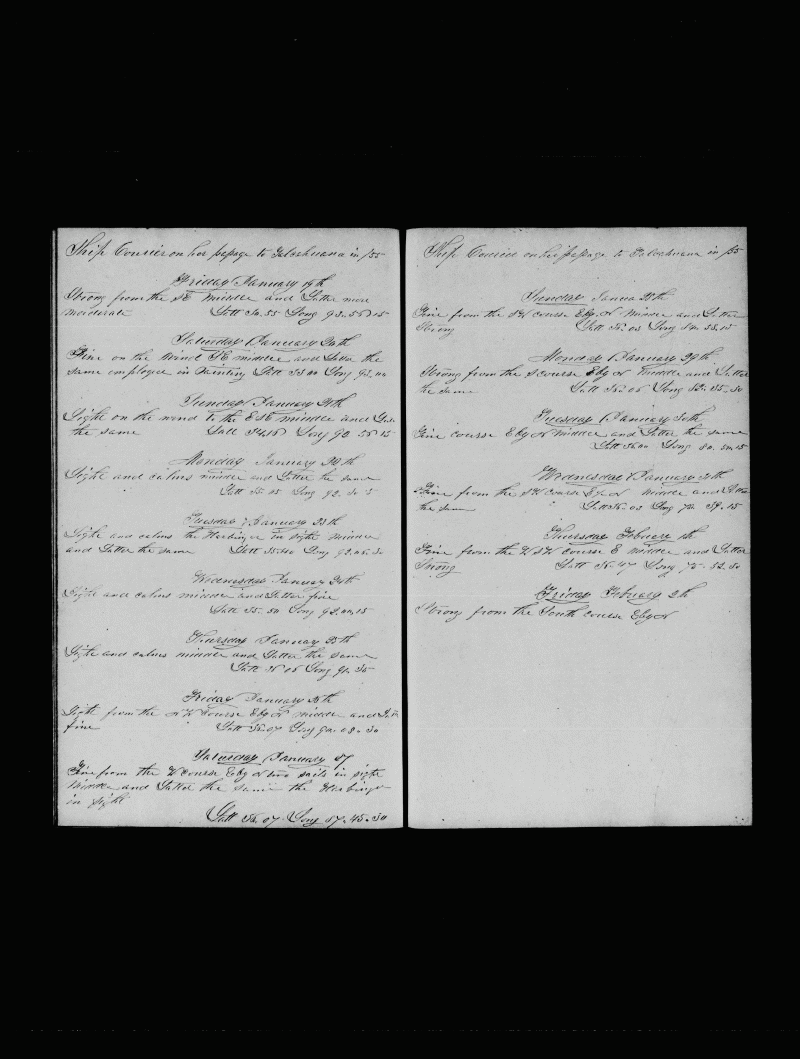 Ship Courier on her passage to Talcahuana in /55
Friday January 19th
Strong from the SE middle and Latter more
moderate Latt 36.55 Long 93.56.15
Saturday January 20th
Fine on the wind SE middle and Latter the
same employee in Painting Latt 35 Long 93
Sunday January 21th
Light on the wend to the ESE middle and
the same Latt 34.56 Long 92. 56.15
Monday January 22th
Light and calms middle and Latter the same
Latt 35.05 Long 92.
Tuesday January 23th
Light and calms the Harbinger in sight middle
and Latter the same Latt 35.40 Long 92.06.30
Wednesday January 24th
Light and calms middle and Latter fine
Latt 35.50 Long 15
Thursday January 25th
Light and calms middle and Latter the same
Latt 36 06 Long 91.35
Friday January 26th
Light from the NW Course EbyN middle and
fine Latt 36.07 Long 90.08.30
Saturday January 27
Fine from the W Course EbyN two sails in sight
Middle and Latter the same the Harbinger
in sight
Latt 36.07 Long 87.45.30
Ship Courier on her passage to Talcahuana in /55
Sunday Janua 28th
Fine from the SW course EbyN Middle and Latter
Strong Latt 36.03 Long 84.53.15
Monday January 29th
Strong from the S course EbyN Middle and Latter
the same Latt 36.06 Long 82.35.30
Tuesday January 30th
Fine course EbyN middle and Latter the same
Latt 36 Long 80. 15
Wednesday January 31th
Fine from the SW course EbyN middle and Latter
the same Latt 36.03 Long 78.39.15
Thursday February 1th
Fine from the WSW course E middle and Latter
Strong Latt 36.47 Long 75.52.30
Friday February 2th
Strong from the South course EbyN